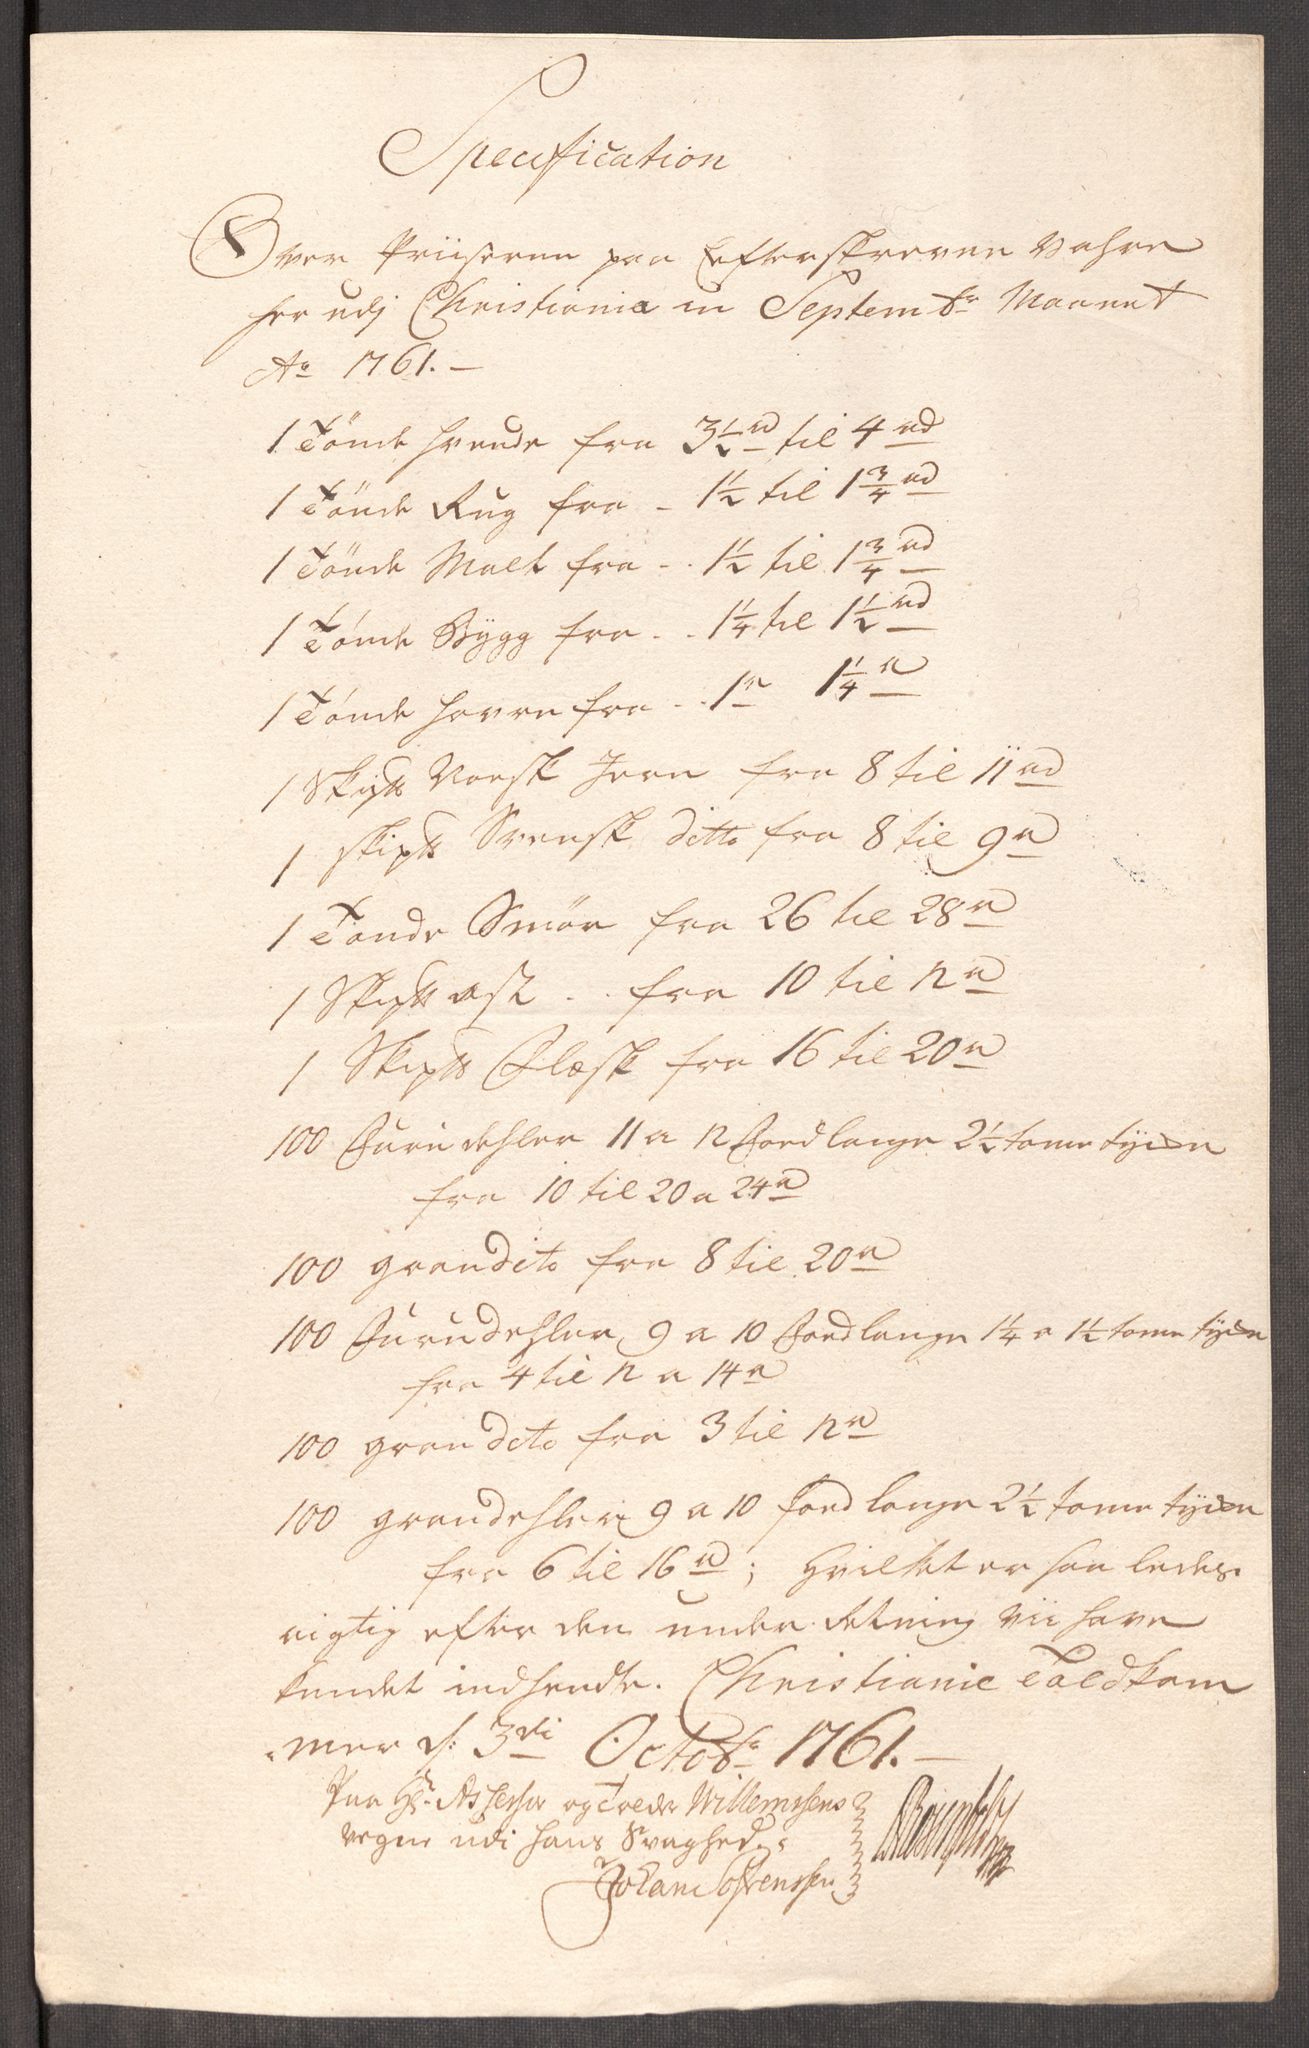 Specification
Over Priiserne paa Efterskrevne Vahre
her udj Christiania in Septembr Maanet
Ao 1761.
1 Tönde hvede fra 3½ rd til 4 rd
1 Tönde Rug fra - 1½ til 1¾ rd
1 Tönde Malt fra - . 1½ til 1¾ rd
1 Tönde Bygg fra - . 1¼ til 1½ rd
1 Tönde havre fra - . 1 r 1¼ r
1 Skip℔ Norsk Jern fra 8 til 11 rd
1 skip℔ Svensk ditto fra 8 til 9 r
1 Tonde Smör fra 26 til 28 r
1 Skip℔ ost . . fra 10 til 12 r
1 Skip℔ Flesk fra 16 til 20 r
100 Furudehler 11 a 12 Foed lange 2½ tome tyke
fra 10 til 20 a 24 r
100 gran dito fra 8 til 20 r
100 Furudehler 9 a 10 Foed lange 1¼ a 1½ tome tyke
fra 4 til 12 a 14 r
100 gran dito fra 3 til 12 r
100 grandehler 9 a 10 foed lange 2½ tome tyke
fra 6 til 16 rd; Hvilket er saaledes
rigtig efter den underretning vii have
kundet indhendte. Christianie Toldkam
-mer d: 3di Octobr 1761.
Paa Hr. Assessor og Treder Willemssens
vegne udi hans Svaghed.
Johan Sörenssen